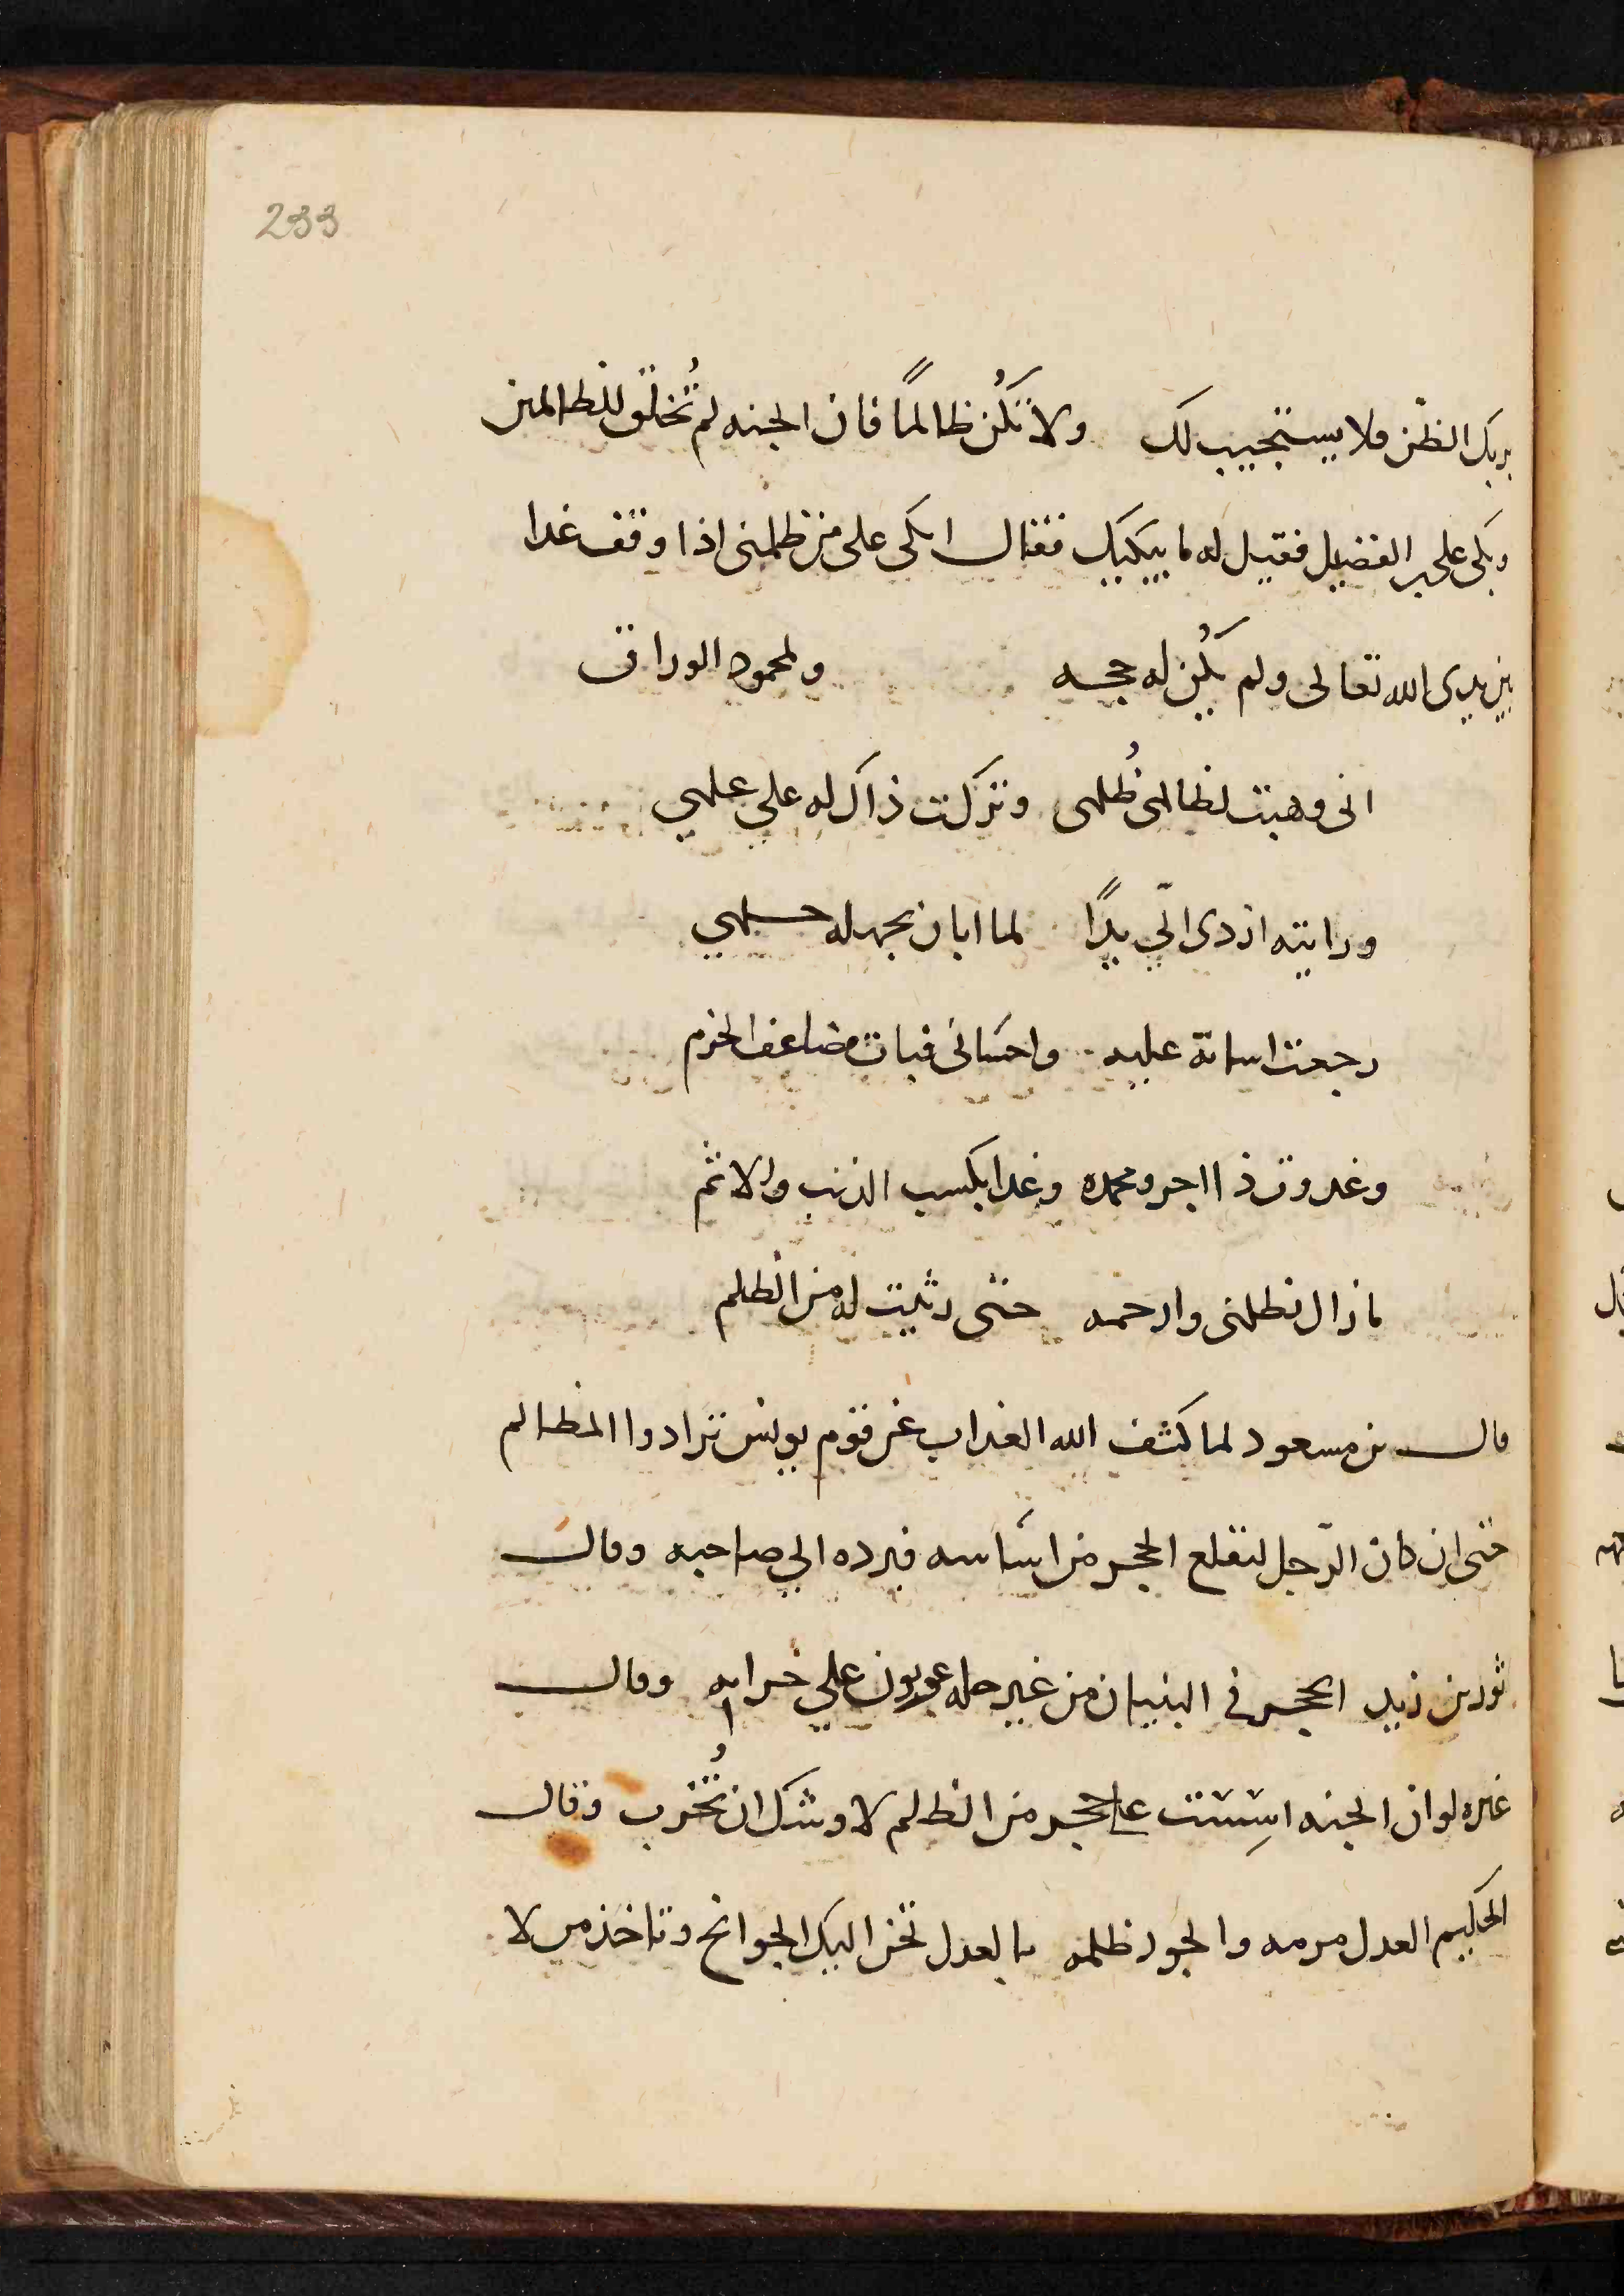 233
بربك الظن فلا يستجيب لك ولا تكُن ظالمًا فان الجنه لم تُخلق للظالمين
وبكى على بن الفضيل فقيل له ما يبكيك فقال ابكى على من ظلمنى اذا وقف غدا
بين يدى الله تعالى ولم يكُن له حجه ولمحمود الوراق
انى وهبت لظالمى ظُلمى وتركت ذاك له على علمي
ورايته ازدى الّي يدًا لما ابان بجهله حلمي
رجعت اساته عليه واحسانى فبات مضاعف الجرم
وغدوت ذا اجر ومحمده وغدا بكسب الذنب والاثم
ما زال يظلمنى وارحمه حتى رثيت له من الظلم
قال بن مسعود لما كشف الله العذاب عن قوم يونس ترادوا المظالم
حتى ان كان الرّجل ليقلع الحجر من اساسه فيرده الي صاحبه وقال
ثور بن زيد الحجر في البنيان من غير حله عربون علي خرابه وقال
غيره لو ان الجنه اسِست على حجر من الظلم لاوشك ان تُخرب وقال
الحكيم العدل والجور ظلمه بالعدل تحن اليك الجوانح وتاخذ من لا